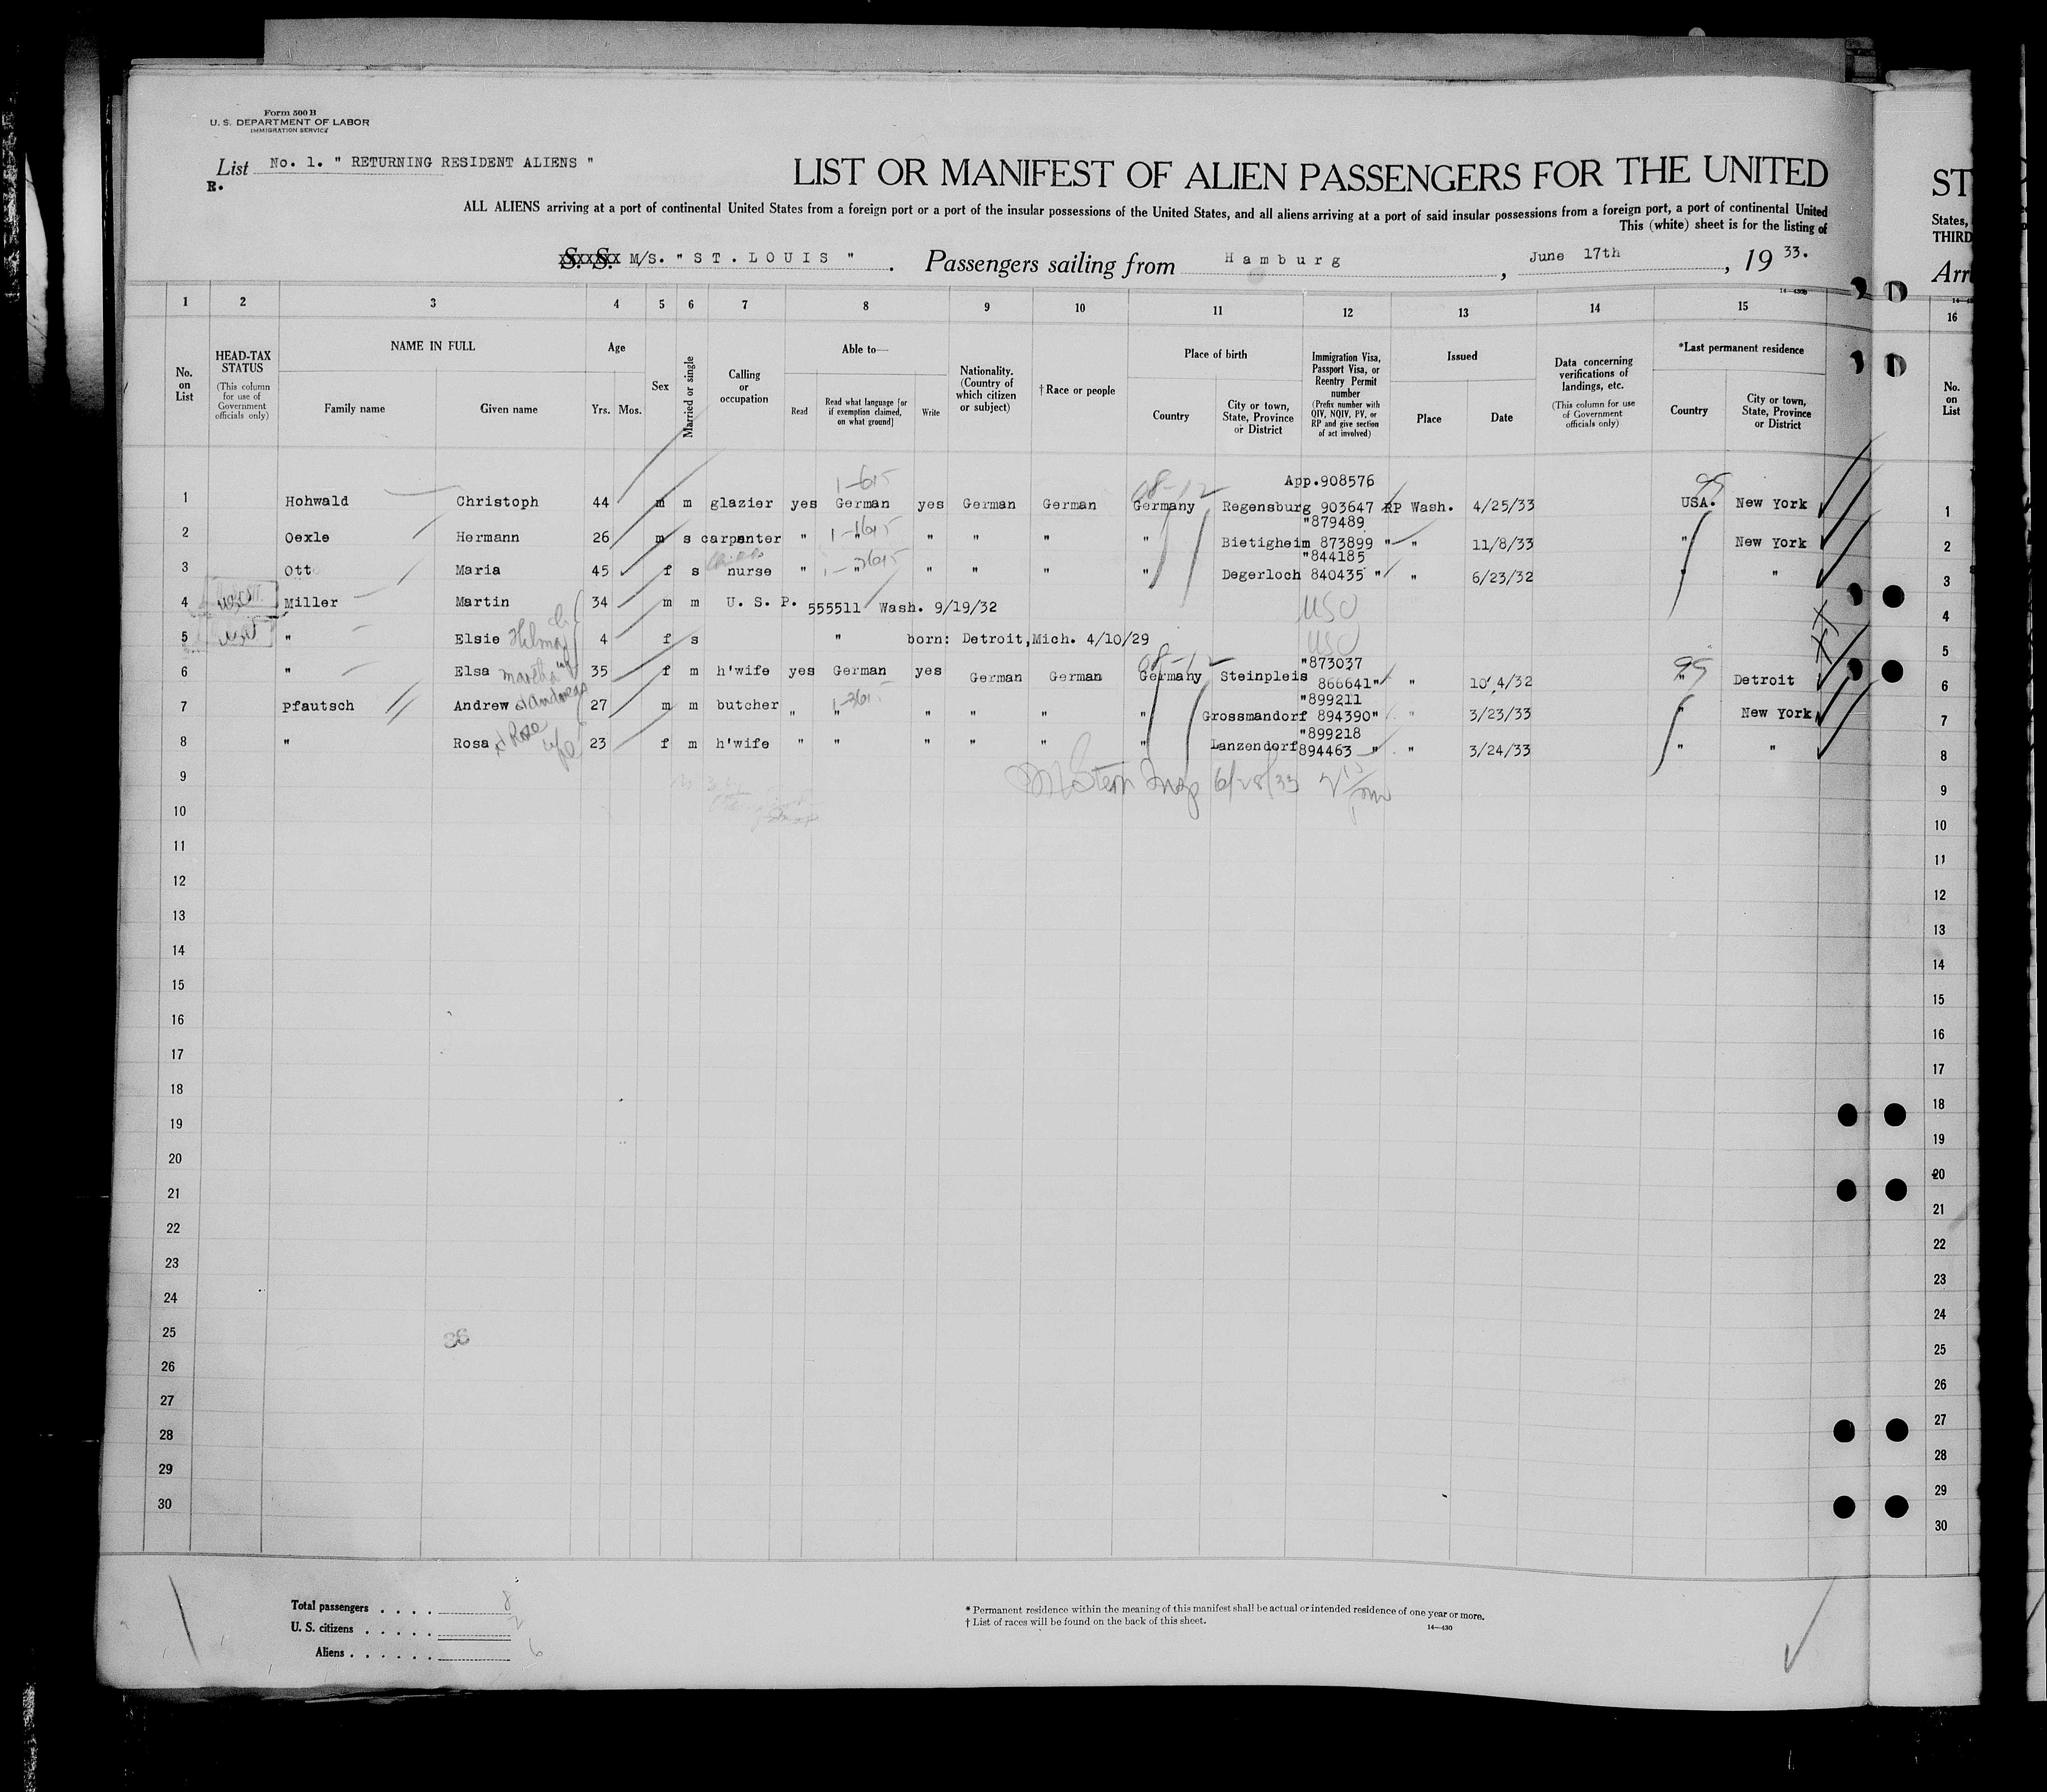 Form 500 B
U. S. DEPARTMENT OF LABOR
IMMIGRATION SERVICE
List No. 1. " RETURNING RESIDENT ALIENS "
R.
LIST OR MANIFEST OF ALIEN PASSENGERS FOR THE UNITED
ALL ALIENS arriving at a port of continental United States from a foreign port or a port of the insular possessions of the United States, and all aliens arriving at a port of said insular possessions from a foreign port, a port of continental United
This (white) sheet is for the listing of
S. S. M/S. " ST. LOUIS " . Passengers sailing from Hamburg , June 17th , 19 33.
ST
States,
THIRD
Arri
1 2 3 4 5 6 7 8 9 10 11 12 13 14 15 16
No. on List
HEAD-TAX STATUS
(This column for use of Government officials only)
NAME IN FULL
Family name
Given name
Age
Yrs. Mos.
Sex
Married or single
Calling or occupation
Able to—
Read
Read what language [or if exemption claimed, on what ground]
Write
Nationality. (Country of which citizen or subject)
† Race or people
Place of birth
Country
City or town, State, Province or District
Immigration Visa, Passport Visa, or Reentry Permit number
(Prefix number with QIV, NQIV, PV, or RP and give section of act involved)
Issued
Place
Date
Data concerning verifications of landings, etc.
(This column for use of Government officials only)
*Last permanent residence
Country
City or town, State, Province or District
No. on List
App.908576
1 Hohwald Christoph 44 m m glazier yes German yes German German Germany Regensburg 903647 RP Wash. 4/25/33 USA. New York 1
"879489
2 Oexle Hermann 26 m s carpenter " " " " " " Bietigheim 873899 " " 11/8/33 " New York 2
"844185
3 Ott Maria 45 f s nurse " " " " " " Degerloch 840435 " " 6/23/32 " " 3
4 Miller Martin 34 m m U. S. P. 555511 Wash. 9/19/32 USC 4
5 " Elsie Helma 4 f s " born: Detroit,Mich. 4/10/29 USC 5
"873037
6 " Elsa Martha 35 f m h'wife yes German yes German German Germany Steinpleis 866641 " " 10/4/32 " Detroit 6
"899211
7 Pfautsch Andrew Andreas 27 m m butcher " " " " " " Grossmandorf 894390 " " 3/23/33 " New York 7
"899218
8 " Rosa Rose wife 23 f m h'wife " " " " " " Lanzendorf 894463 " " 3/24/33 " " 8
9 9
10 10
11 11
12 12
13 13
14 14
15 15
16 16
17 17
18 18
19 19
20 20
21 21
22 22
23 23
24 24
25 25
26 26
27 27
28 28
29 29
30 30
Total passengers . . . . 8
U. S. citizens . . . . . 2
Aliens . . . . . . 6
* Permanent residence within the meaning of this manifest shall be actual or intended residence of one year or more.
† List of races will be found on the back of this sheet.
14—430